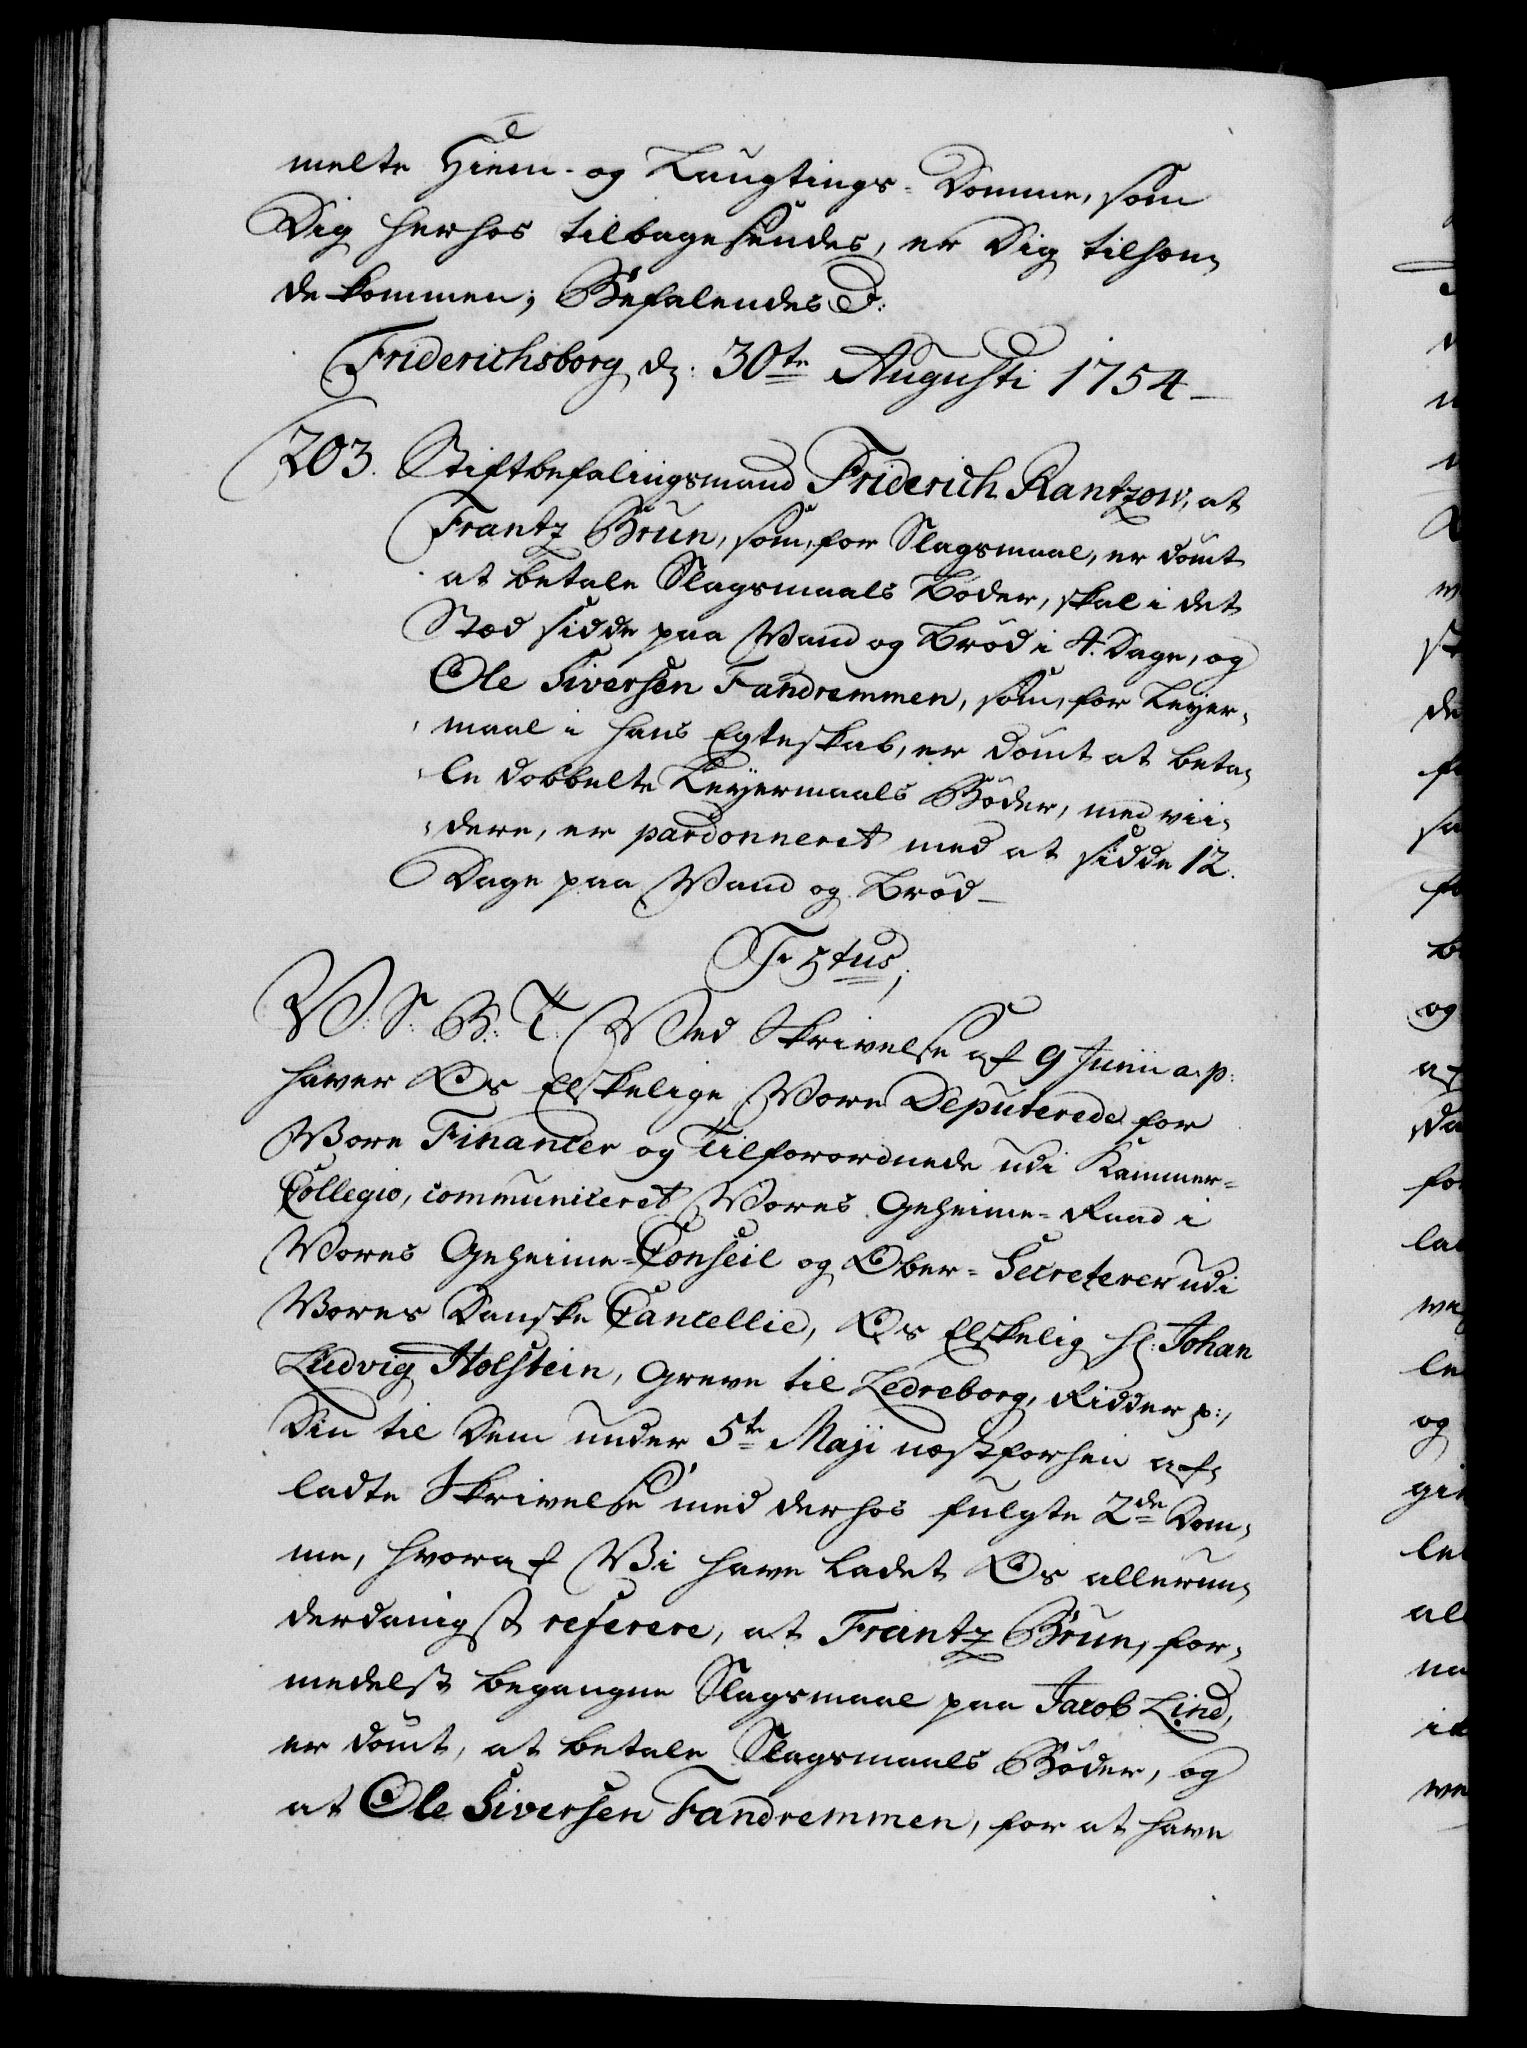 melte Hiem- og Laugtings-Domme, som
Dig herhos tilbagesendes, er Dig tilhæn¬
de kommen; Befalendes d:
Friderichsborg, d: 30te Augusti 1754
203. Stiftbefalingsmand Friderich Rantzow, at
Frantz Brun, som, for Slagsmaal, er dömt
at betale Slagsmaals Böder, skal i det
Stæd sidde paa Vand og Bröd i 4. Dage, og
Ole Siversen Fandremmen, som, for Leyer¬
maal i hans Egteskab, er dömt at beta¬
le dobbelte Leyermaals Böder, med vii¬
dere, er pardonneret med at sidde 12.
Dage paa Vand og Bröd
Fr 5tus,
V: S: G: T. Ved Skrivelse af 9 Junii a. p:
haver Os Elskelige Vore Deputerede for
Vore Financer og Tilforordnede udi Kammer-
Collegio, communiceret Vores Geheime-Raad i
Vores Geheime-Conseil og Ober-Secreterer udi
Vores Danske Cancellie, Os Elskelig Hr: Johan
Ludvig Holstein, Greve til Ledreborg, Ridder p:,
Din til Dem under 5te Maji næstforhen af¬
ladte Skrivelse med derhos fulgte 2de Dom¬
me, hvoraf Vi have ladet Os allerun¬
derdanigst referere, at Frantz Brun, for¬
medelst begangne Slagsmaal paa Jacob Lind,
er dömt, at betale Slagsmaals Böder, og
at Ole Siversen Fandremmen, for at have